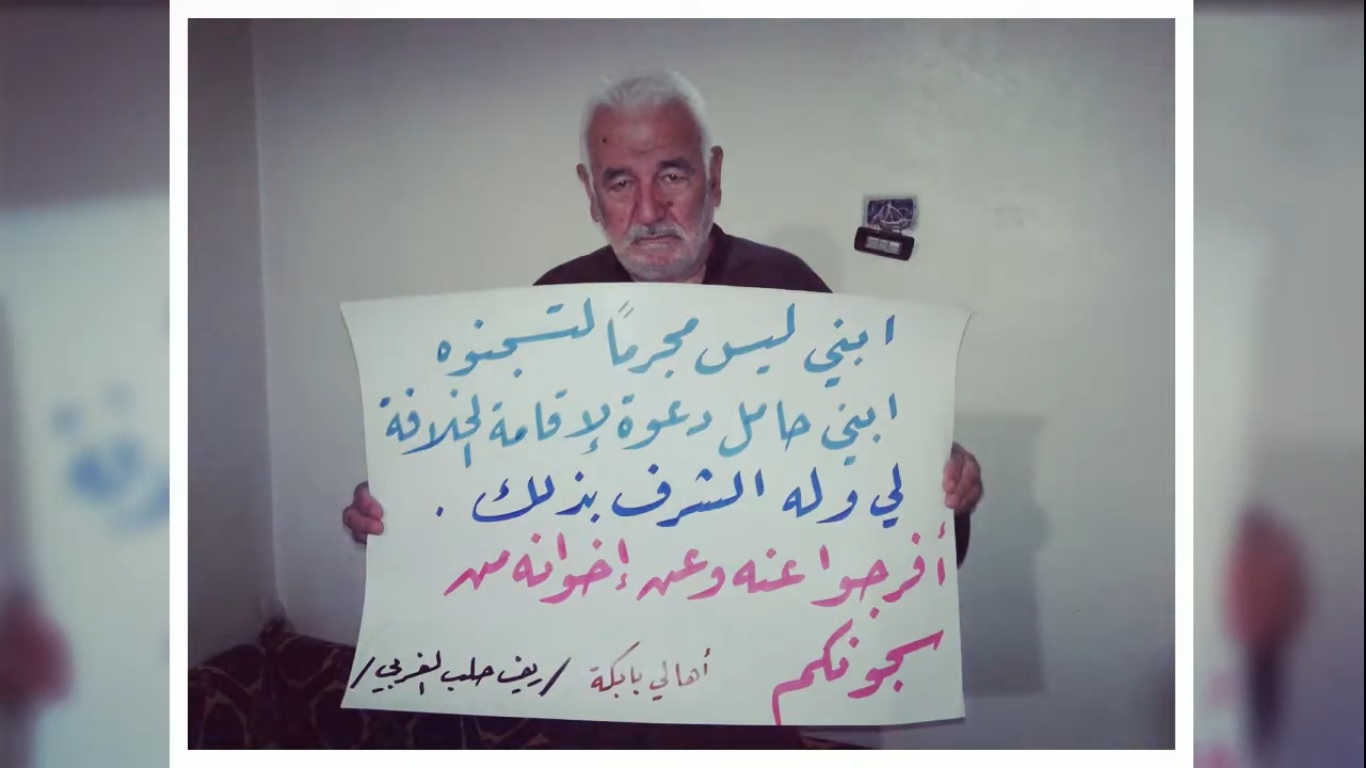 ابني ليس مجرماً لتسجنوه
ابني حامل دعوة لإقامة الخلافة
لي وله الشرف بذلك .
أفرجوا عنه وعن إخوانه من
سجونكم
أهالي بابكة /ريف حلب الغربي/